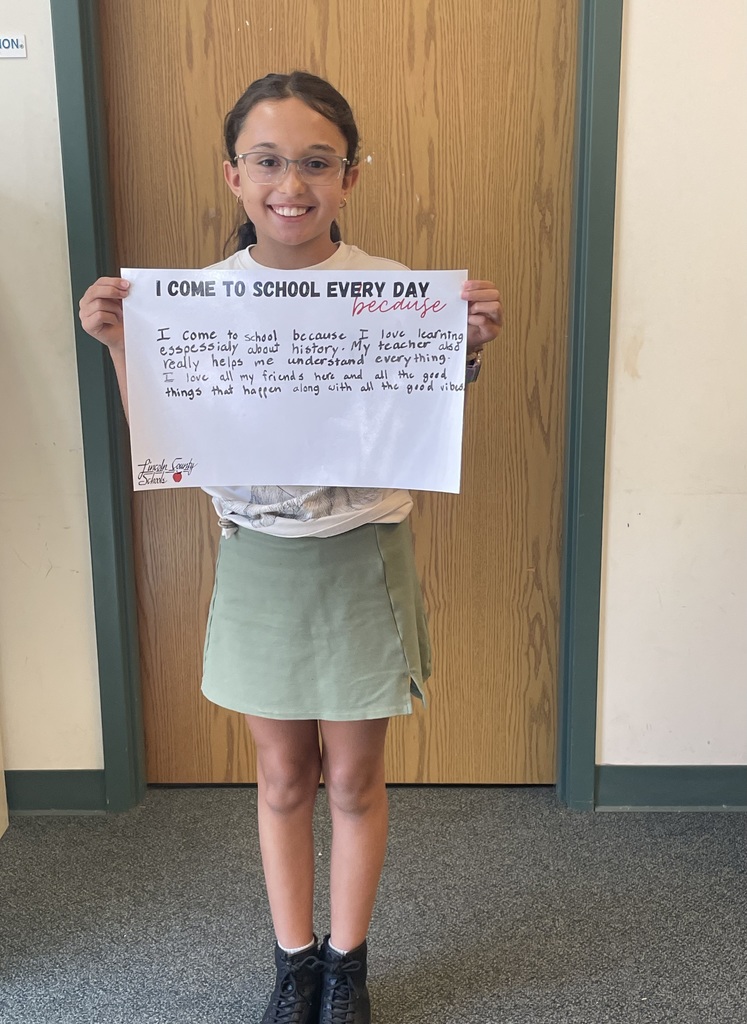 ION®
I COME TO SCHOOL EVERY DAY
because
I come to school because I love learning
esspessialy about history. My teacher also
really helps me understand everything.
I love all my friends here and all the good
things that happen along with all the good vibes.
Lincoln County
Schools